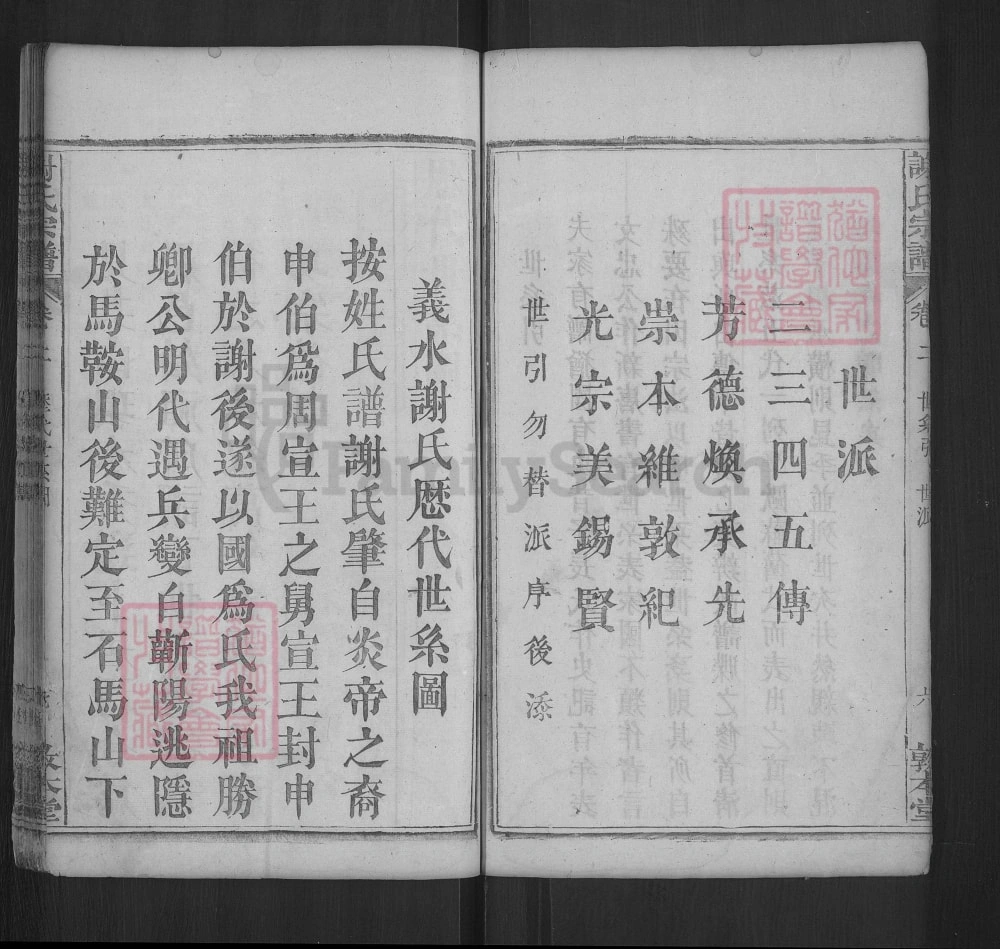 世派
二三四五傳
芳德煥承先
崇本維敦紀
光宗美錫賢
世引勿替派序後添
謝氏宗譜
卷二
世系引
世派
六
敦本堂
義水謝氏歷代世系圖
按姓氏譜謝氏肇自炎帝之裔
申伯爲周宣王之舅宣王封申
伯於謝後遂以國爲氏我祖勝
卿公明代遇兵變自蘄陽逃隱
於馬鞍山後難定至石馬山下
FamilySearch